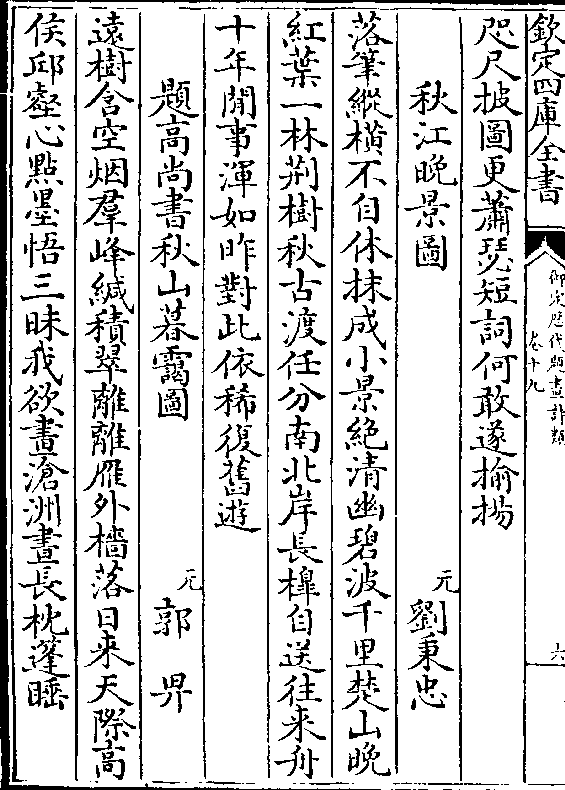 欽定四庫全書
御定歷代題畫詩類
卷十九
六
咫尺披圖更蕭瑟短詞何敢遂揄揚
秋江晚景圖
元 劉秉忠
落筆縱橫不自休抹成小景絶清幽碧波千里楚山晚
紅葉一林荆樹秋古渡任分南北岸長橰自送往来舟
十年閒事渾如昨對此依稀復舊遊
題高尚書秋山暮靄圖
元 郭畀
遠樹含空烟羣峰緘積翠離離雁外檣落日来天際高
侯邱壑心點墨悟三昧我欲畫滄洲晝長枕蓬睡